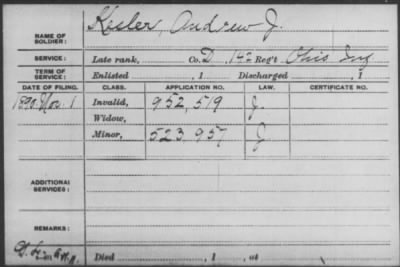 NAME OF SOLDIER: Kesler, Andrew J.
SERVICE: Late rank, Co. D, 142 Reg't Ohio Inf
TERM OF SERVICE: Enlisted , 1 Discharged , 1
DATE OF FILING. CLASS. APPLICATION NO. LAW. CERTIFICATE NO.
1890 Nov. 1 Invalid, 952,519 J.
Widow,
Minor, 523,957 J
ADDITIONAL SERVICES:
REMARKS:
Died , 1 , at